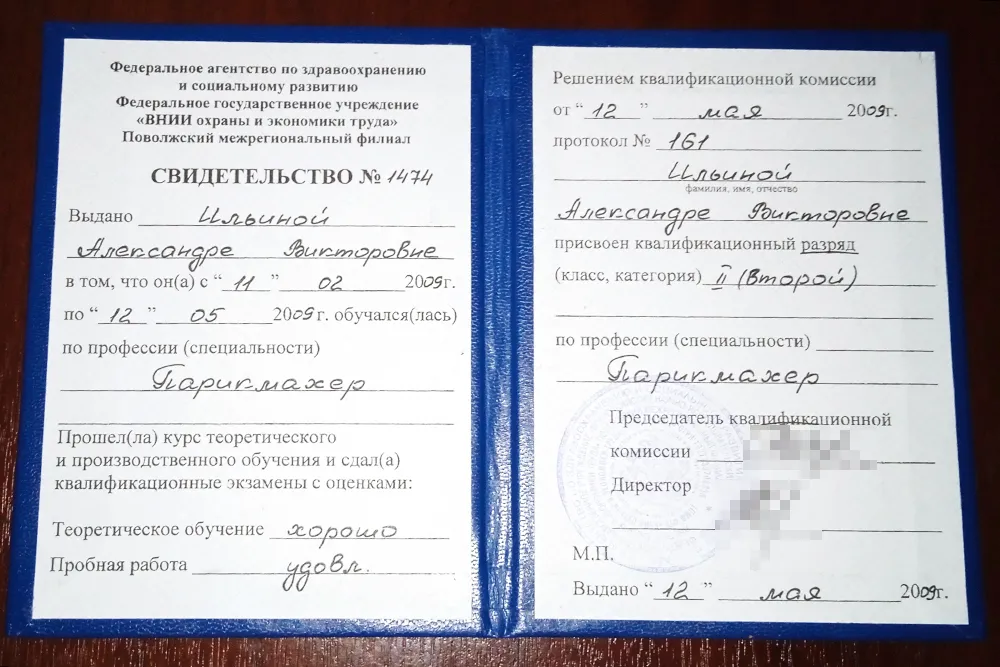 Федеральное агентство по здравоохранению
и социальному развитию
Федеральное государственное учреждение
«ВНИИ охраны и экономики труда»
Поволжский межрегиональный филиал
СВИДЕТЕЛЬСТВО № 1474
Выдано Ильиной
Александре Викторовне
в том, что он(а) с “11” 02 2009г.
по “12” 05 2009г. обучался(лась)
по профессии (специальности)
Парикмахер
Прошел(ла) курс теоретического
и производственного обучения и сдал(а)
квалификационные экзамены с оценками:
Теоретическое обучение хорошо
Пробная работа удовл.
Решением квалификационной комиссии
от “12” мая 2009г.
протокол № 161
Ильиной
фамилия, имя, отчество
Александре Викторовне
присвоен квалификационный разряд
(класс, категория) II (второй)
по профессии (специальности)
Парикмахер
Председатель квалификационной
комиссии
Директор
М.П.
Выдано “12” мая 2009г.